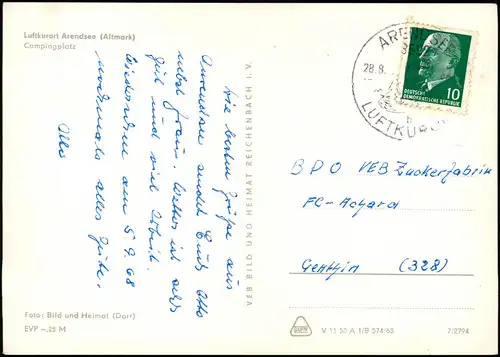 Luftkurort Arendsee (Altmark)
Campingplatz
Die besten Grüße aus
Arendsee sendet Euch Otto
nebst Frau. Wetter ist sehr
gut und viel Arbeit.
Wiedersehen am 5.9.68
nochmals alles Gute.
Otto
Foto: Bild und Heimat (Darr)
EVP –.25 M
VEB BILD UND HEIMAT REICHENBACH I. V.
ARENDSEE
28.8.
LUFTKURORT
DEUTSCHE
DEMOKRATISCHE REPUBLIK 10
BPO VEB Zuckerfabrik
FC-Achard
Genthin (328)
V 11 50 A 1/B 574/65
7/2794